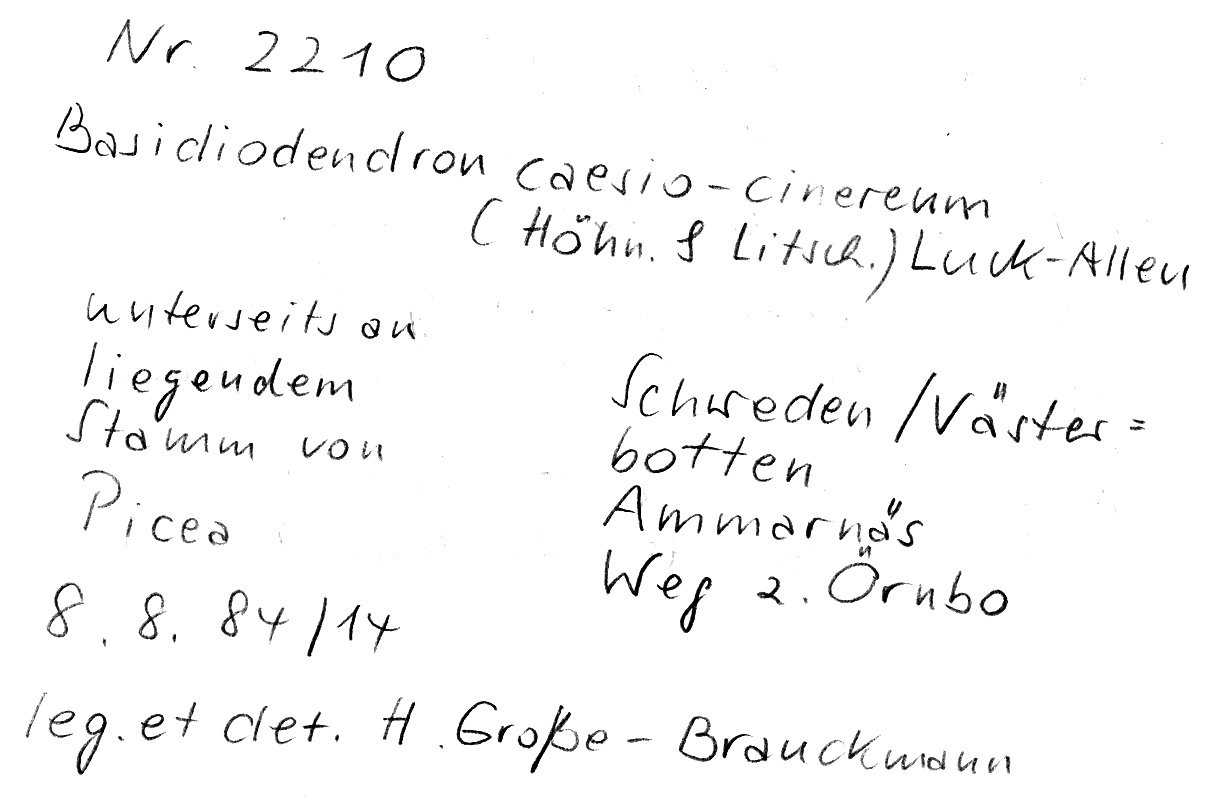 Nr. 2210
Basidiodendron caesio-cinereum
(Höhn. & Litsch.) Luck-Allen
unterseits an
liegendem
Stamm von
Picea
8. 8. 84/14
Schweden/Väster=
botten
Ammarnäs
Weg z. Örnbo
leg. et det. H. Große-Brauckmann